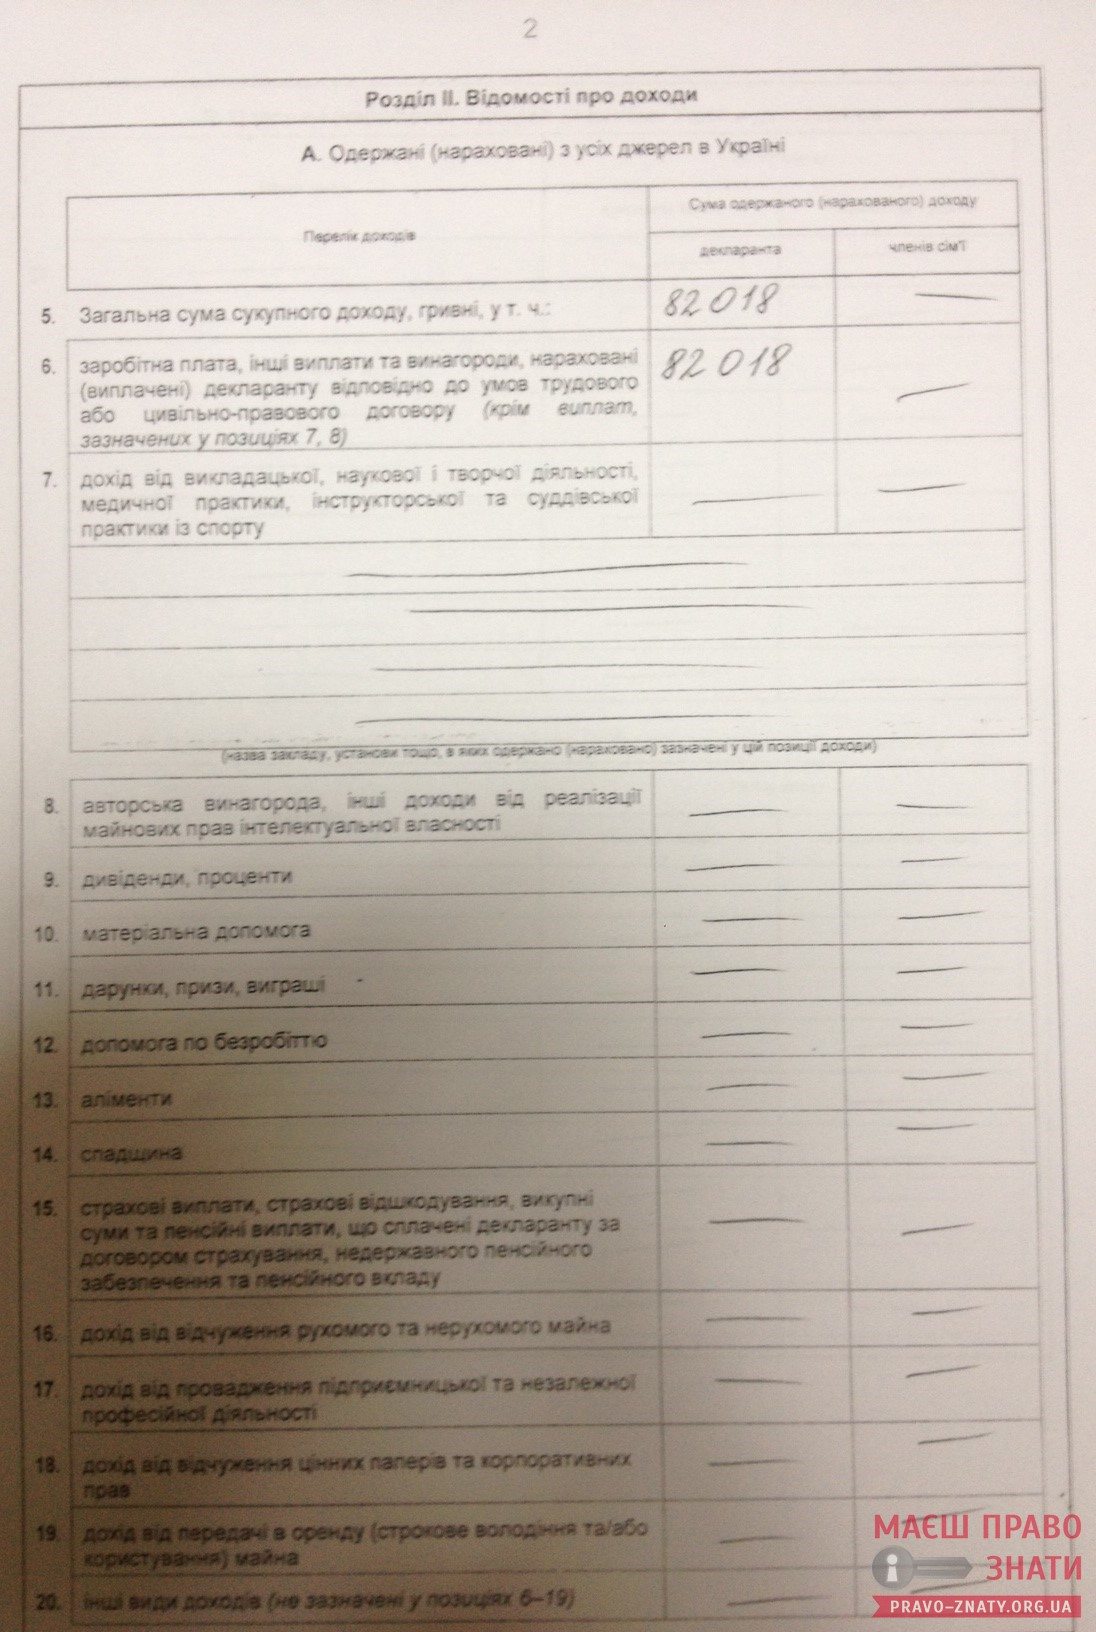 2
Розділ II. Відомості про доходи
А. Одержані (нараховані) з усіх джерел в Україні
Перелік доходів
Сума одержаного (нарахованого) доходу
декларанта
членів сім'ї
5. Загальна сума сукупного доходу, гривні, у т. ч.: 82 018 —
6. заробітна плата, інші виплати та винагороди, нараховані 82 018 —
(виплачені) декларанту відповідно до умов трудового
або цивільно-правового договору (крім виплат,
зазначених у позиціях 7, 8)
7. дохід від викладацької, наукової і творчої діяльності, — —
медичної практики, інструкторської та суддівської
практики із спорту
—
—
—
—
(назва закладу, установи тощо, в яких одержано (нараховано) зазначені у цій позиції доходи)
8. авторська винагорода, інші доходи від реалізації — —
майнових прав інтелектуальної власності
9. дивіденди, проценти — —
10. матеріальна допомога — —
11. дарунки, призи, виграші — —
12. допомога по безробіттю — —
13. аліменти — —
14. спадщина — —
15. страхові виплати, страхові відшкодування, викупні — —
суми та пенсійні виплати, що сплачені декларанту за
договором страхування, недержавного пенсійного
забезпечення та пенсійного вкладу
16. дохід від відчуження рухомого та нерухомого майна — —
17. дохід від провадження підприємницької та незалежної — —
професійної діяльності
18. дохід від відчуження цінних паперів та корпоративних — —
прав
19. дохід від передачі в оренду (строкове володіння та/або — —
користування) майна
20. інші види доходів (не зазначені у позиціях 6–19) — —
МАЄШ ПРАВО
ЗНАТИ
PRAVO-ZNATY.ORG.UA